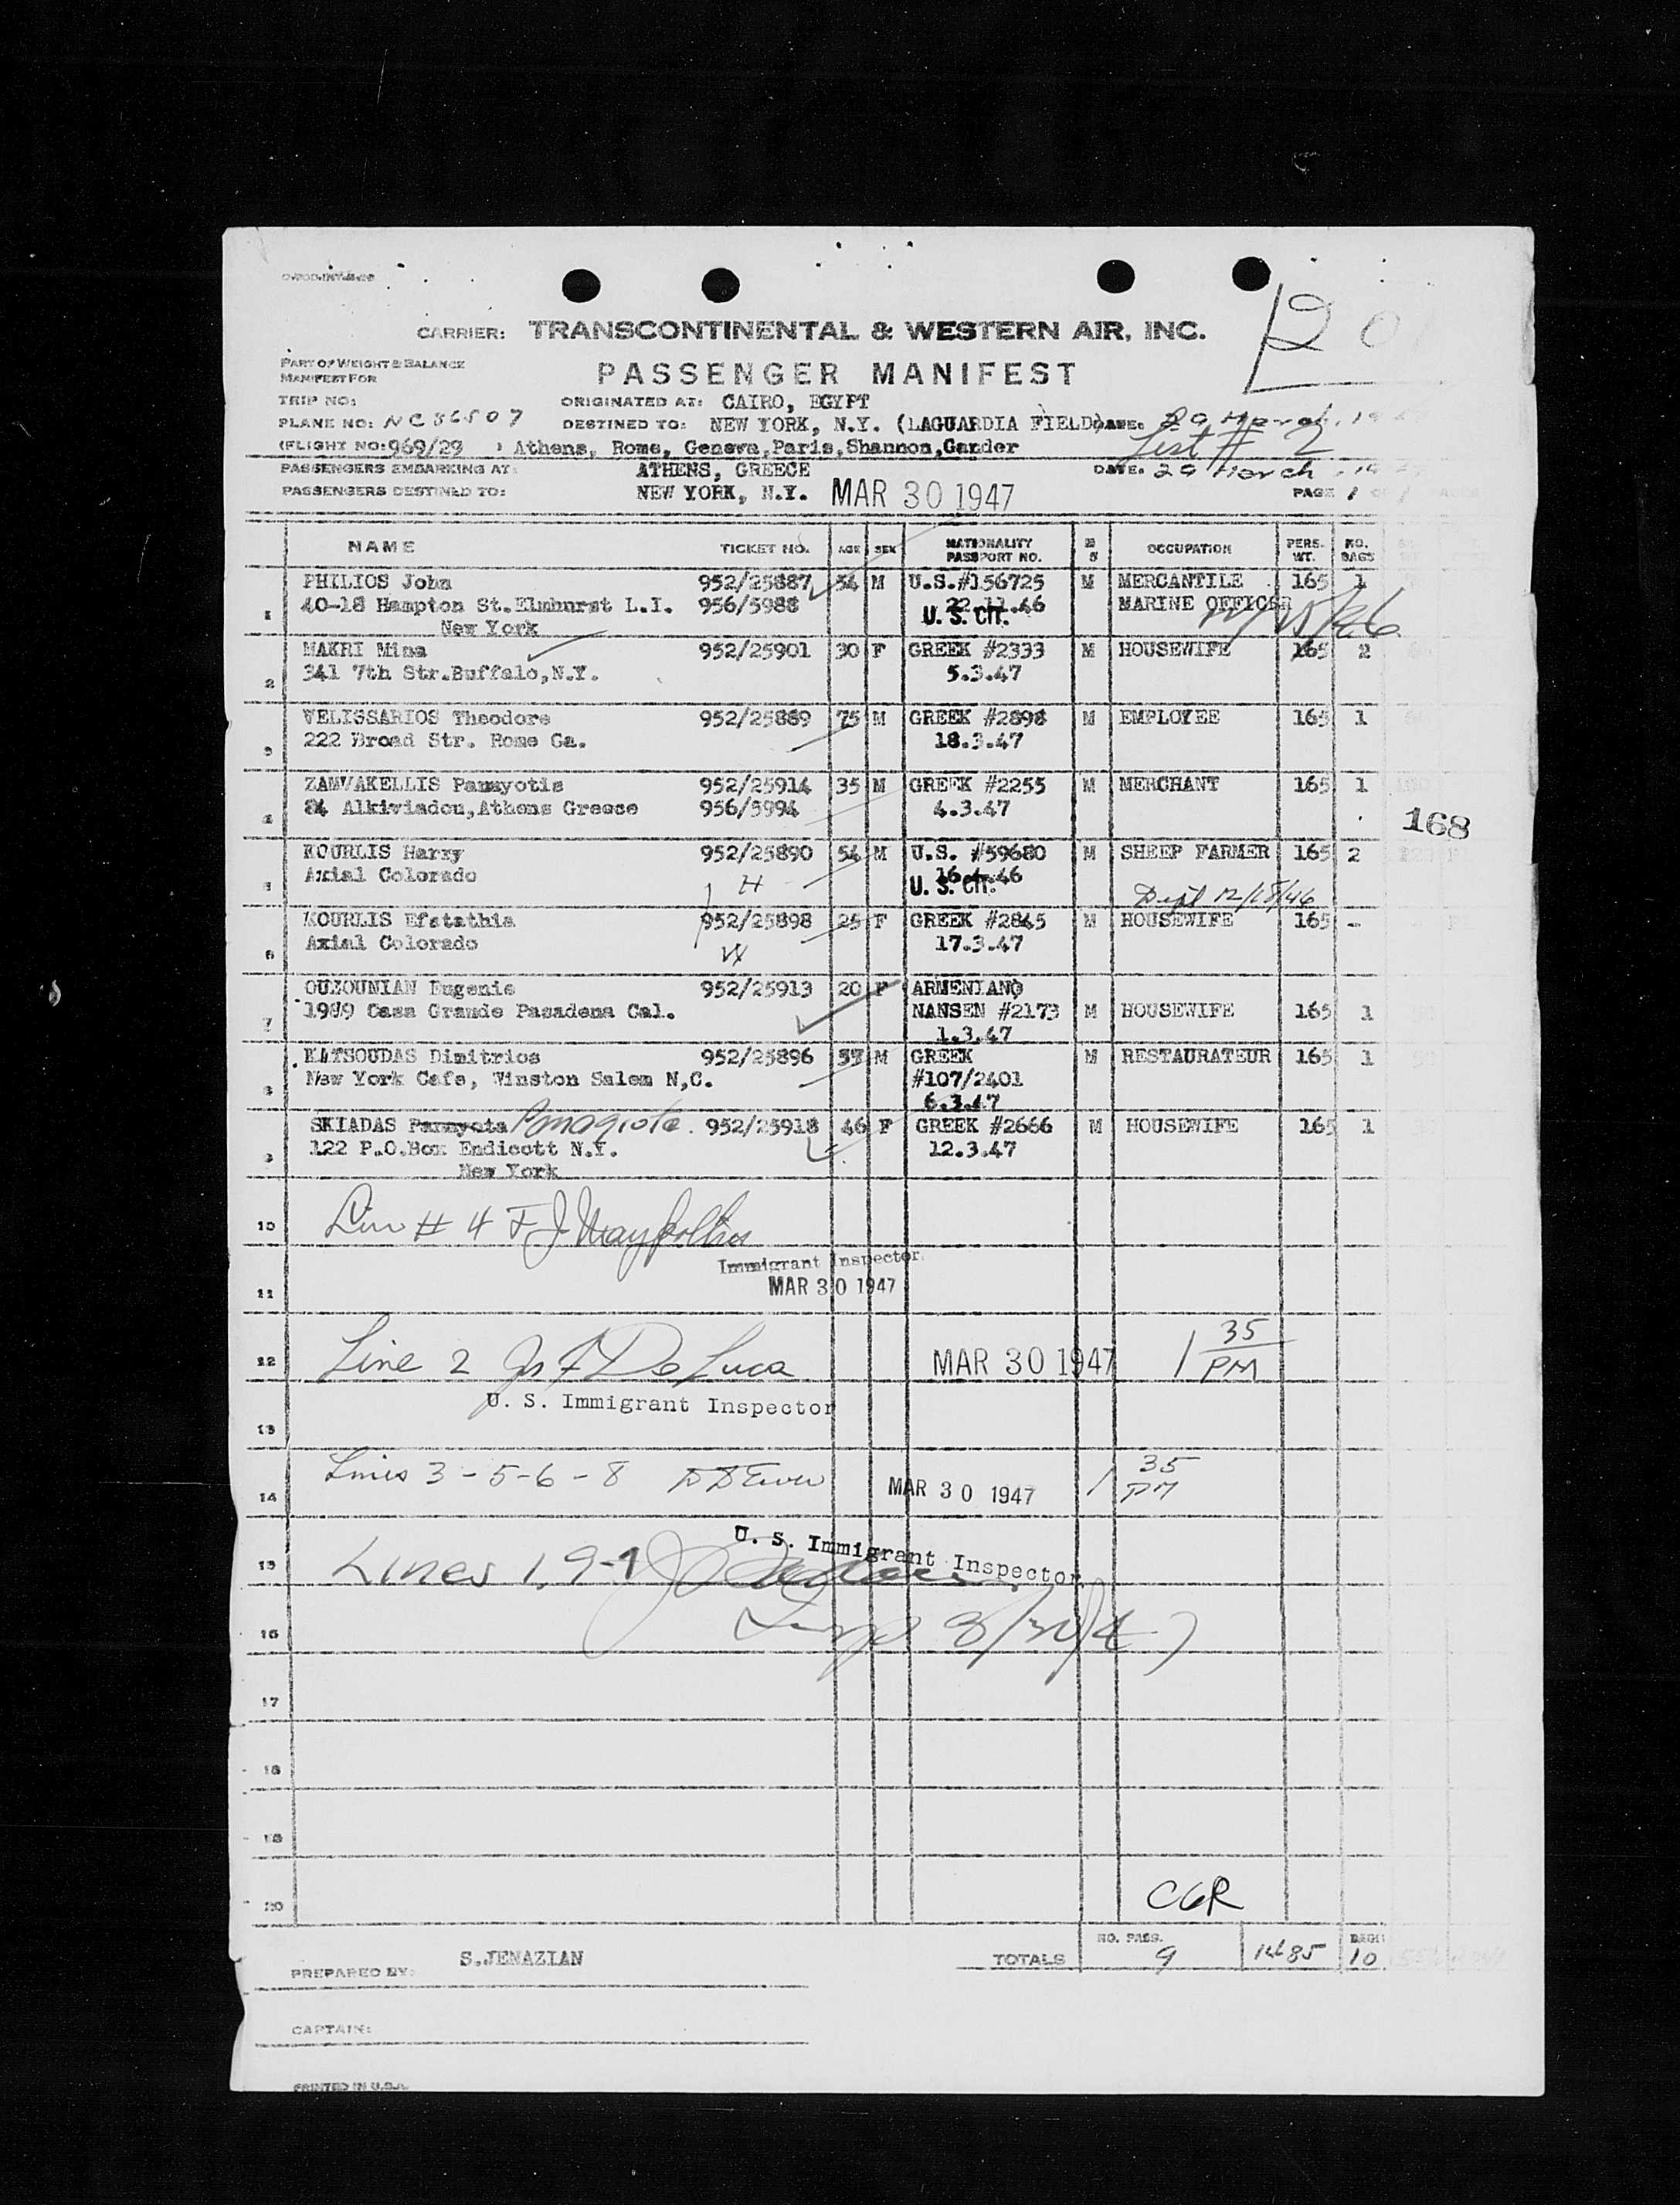 CARRIER: TRANSCONTINENTAL & WESTERN AIR, INC.
PART OF WEIGHT & BALANCE
MANIFEST FOR
PASSENGER MANIFEST
TRIP NO: ORIGINATED AT: CAIRO, EGYPT
PLANE NO: NC86507 DESTINED TO: NEW YORK, N.Y. (LAGUARDIA FIELD) DATE: 29 March, 19
List # 2
(FLIGHT NO: 969/29 ) Athens, Rome, Geneva, Paris, Shannon, Gander
PASSENGERS EMBARKING AT: ATHENS, GREECE DATE. 29 March, 19
PASSENGERS DESTINED TO: NEW YORK, N.Y. MAR 30 1947 PAGE 1 OF 1
NAME TICKET NO. AGE SEX NATIONALITY PASSPORT NO. M S OCCUPATION PERS. WT. NO. BAGS
1 PHILIOS John 952/25887 54 M U.S.#156725 M MERCANTILE 165 1
40-18 Hampton St.Elmhurst L.I. 956/5988 22.11.46 MARINE OFFICER
New York U. S. CIT.
2 MAKRI Mina 952/25901 30 F GREEK #2333 M HOUSEWIFE 165 2
341 7th Str.Buffalo,N.Y. 5.3.47
3 VELISSARIOS Theodore 952/25889 75 M GREEK #2898 M EMPLOYEE 165 1
222 Broad Str. Rome Ga. 18.3.47
4 ZAMVAKELLIS Panayotis 952/25914 35 M GREEK #2255 M MERCHANT 165 1
84 Alkiviadou,Athens Greece 956/5994 4.3.47
168
5 KOURLIS Harry 952/25890 54 M U.S. #59680 M SHEEP FARMER 165 2
Axial Colorado 16.4.46
U. S. CIT. Dept 12/18/46
6 KOURLIS Efstathia 952/25898 25 F GREEK #2845 M HOUSEWIFE 165 -
Axial Colorado 17.3.47
7 OUZOUNIAN Eugenie 952/25913 20 F ARMENIAN
1989 Casa Grande Pasadena Cal. NANSEN #2173 M HOUSEWIFE 165 1
1.3.47
8 KATSOUDAS Dimitrios 952/25896 57 M GREEK M RESTAURATEUR 165 1
New York Cafe, Winston Salem N,C. #107/2401
6.3.47
9 SKIADAS Panayota Panagiota. 952/25918 46 F GREEK #2666 M HOUSEWIFE 165 1
122 P.O.Box Endicott N.Y. 12.3.47
New York
10 Line # 4
Immigrant Inspector
11 MAR 30 1947
12 Line 2 Jas F De Luca MAR 30 1947 1 35 PM
U. S. Immigrant Inspector
13
14 Lines 3-5-6-8 MAR 30 1947 1 35 PM
U. S. Immigrant Inspector
15 Lines 1, 9-7
16 Insp 3/30/47
17
18
19
20 CGR
PREPARED BY: S.JENAZIAN TOTALS NO. PASS. 9 1485 BAGS 10
CAPTAIN:
PRINTED IN U.S.A.